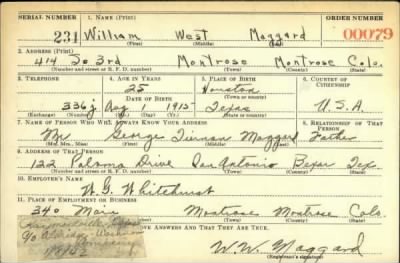 SERIAL NUMBER 1. NAME (Print) ORDER NUMBER
231 William West Maggard 00079
(First) (Middle) (Last)
2. ADDRESS (Print)
414 So 3rd Montrose Montrose Colo.
(Number and street or R. F. D. number) (Town) (County) (State)
3. TELEPHONE 4. AGE IN YEARS 5. PLACE OF BIRTH 6. COUNTRY OF CITIZENSHIP
25 Houston
DATE OF BIRTH (Town or county)
336j Aug 1 1915 Texas U.S.A
(Exchange) (Number) (Mo.) (Day) (Yr.) (State or country)
7. NAME OF PERSON WHO WILL ALWAYS KNOW YOUR ADDRESS 8. RELATIONSHIP OF THAT PERSON
Mr George Tiernan Maggard Father
(Mr., Mrs., Miss) (First) (Middle) (Last)
9. ADDRESS OF THAT PERSON
122 Paloma Drive San Antonio Bexar Tex.
(Number and street or R. F. D. number) (Town) (County) (State)
10. EMPLOYER'S NAME
W. G. Whitehurst
11. PLACE OF EMPLOYMENT OR BUSINESS
340 Main Montrose Montrose Colo
(Town) (County) (State)
ABOVE ANSWERS AND THAT THEY ARE TRUE.
Company
W. W. Maggard
(Registrant's signature)